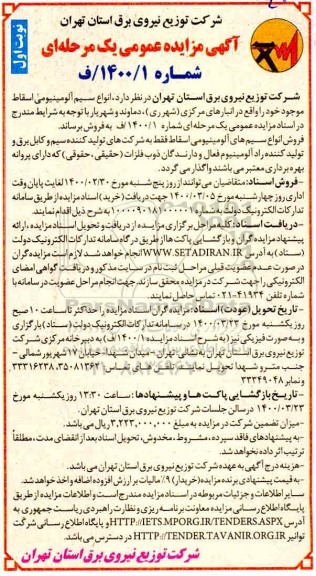 شرکت توزیع نیروی برق استان تهران
آگهی مزایده عمومی یک مرحله‌ای
شماره ۱۴۰۰/۱/ف
نوبت اول
شرکت توزیع نیروی برق استان تهران در نظر دارد، انواع سیم آلومینیومی اسقاط
موجود خود را واقع در انبارهای مرکزی (شهرری)، دماوند و شهریار با توجه به شرایط مندرج
در اسناد مزایده عمومی یک مرحله‌ای شماره ۱۴۰۰/۱/ف به فروش برساند.
فروش انواع سیم های آلومینیومی اسقاط فقط به شرکت های تولید کننده سیم و کابل برق و
تولید کننده راد آلومینیوم فعال و دارندگان ذوب فلزات (حقیقی، حقوقی) که دارای پروانه
بهره برداری معتبر می باشند واگذار می گردد.
- فروش اسناد: متقاضیان می توانند از روز پنج شنبه مورخ ۱۴۰۰/۰۲/۳۰ لغایت پایان وقت
اداری روز چهارشنبه مورخ ۱۴۰۰/۰۳/۰۵ جهت دریافت (خرید) اسناد مزایده از طریق سامانه
تدارکات الکترونیک دولت به شرح ذیل اقدام نمایند.
- دریافت اسناد: کلیه مراحل برگزاری مزایده از دریافت و تحویل اسناد مزایده، ارائه
پیشنهاد مزایده گران و بازگشایی پاکت ها از طریق درگاه سامانه تدارکات الکترونیک دولت
(ستاد) به آدرس WWW.SETADIRAN.IR انجام خواهد شد. لازم است مزایده گران
در صورت عدم عضویت قبلی مراحل ثبت نام در سایت مذکور و دریافت گواهی امضای
الکترونیکی را جهت شرکت در مزایده محقق سازند. جهت انجام مراحل عضویت در سامانه با
شماره تلفن ۴۱۹۳۴-۰۲۱ تماس حاصل نمایند.
- تاریخ تحویل (عودت) اسناد: مزایده گران اسناد مزایده را حداکثر تا ساعت ۱۰ صبح
روز یکشنبه مورخ ۱۴۰۰/۰۳/۲۳ در سامانه تدارکات الکترونیک دولت (ستاد) بارگزاری
و به صورت فیزیکی نیز (به شرح اسناد مزایده ۱۴۰۰/۱/ف) به دبیرخانه مرکزی شرکت
توزیع نیروی برق استان تهران به نشانی تهران - میدان شهدا، خیابان ۱۷ شهریور شمالی -
جنب مترو شهدا تحویل نمایند. تلفن های تماس ۳۵۰۸۱۳۶۲، ۳۳۳۱۶۲۳۸
و نمابر ۳۳۳۴۹۰۴۸
- تاریخ بازگشایی پاکت ها و پیشنهادها: ساعت ۱۳:۰۰ روز یکشنبه مورخ
۱۴۰۰/۰۳/۲۳ در سالن جلسات شرکت توزیع نیروی برق استان تهران.
- میزان تضمین شرکت در مزایده به مبلغ ۳,۲۲۳,۰۰۰,۰۰۰ ریال می باشد.
- به پیشنهادهای فاقد سپرده، مشروط، مخدوش، تحویل اسناد بعد از انقضای مدت، مطلقاً
ترتیب اثر داده نخواهد شد.
- هزینه درج آگهی به عهده شرکت توزیع نیروی برق استان تهران می باشد.
- به قیمت پیشنهادی برنده مزایده (خریدار) ۹٪ مالیات بر ارزش افزوده اضافه و اخذ خواهد شد.
سایر اطلاعات و جزئیات مربوطه در اسناد مزایده مندرج است و اطلاعات مزایده از طریق
پایگاه اطلاع رسانی مزایده معاونت برنامه ریزی و نظارت راهبردی ریاست جمهوری به
آدرس HTTP://IETS.MPORG.IR/TENDERS.ASPX و پایگاه اطلاع رسانی شرکت
توانیر HTTP://TENDER.TAVANIR.ORG.IR در دسترس می باشد.
شرکت توزیع نیروی برق استان تهران